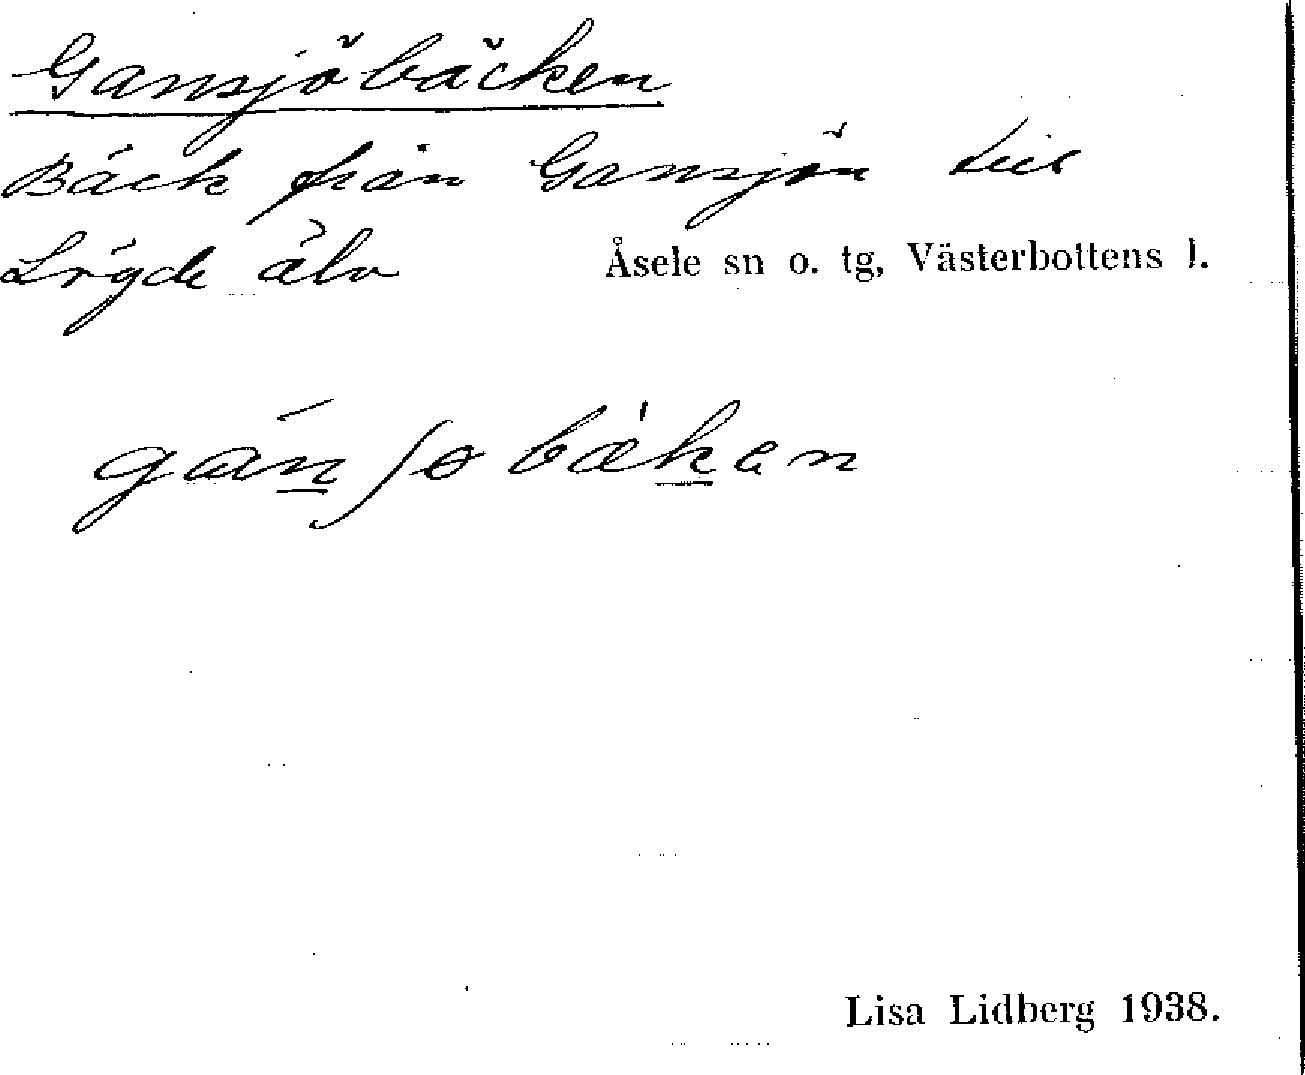 Gansjöbäcken
Bäck från Gansjön till
Lögde älv
Åsele sn o. tg, Västerbottens l.
gán̲ʃɵbæ̍k̲en
Lisa Lidberg 1938.